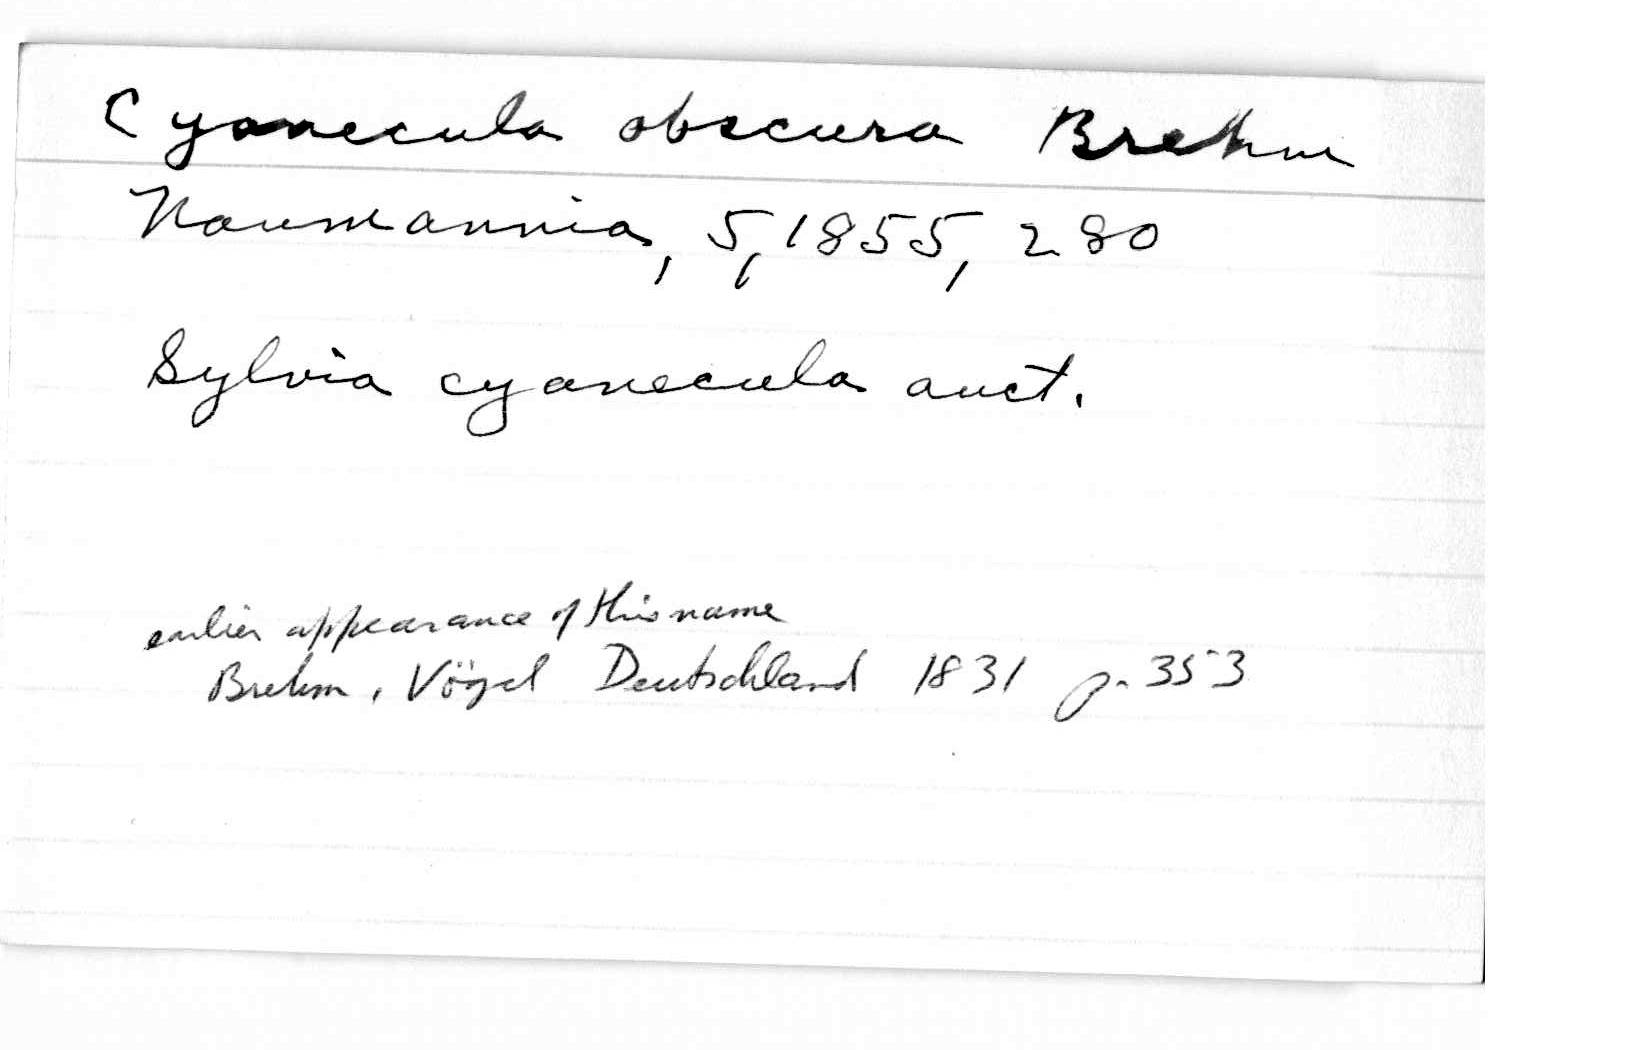 Cyanecula obscura Brehm
Naumannia, 5, 1855, 280
Sylvia cyanecula auct.
earlier appearance of this name
Brehm, Vögel Deutschland 1831 p. 353